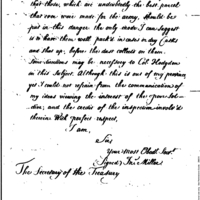 that those, which are undoubtedly the best parcel
that ever were made for the army, should be
put in this danger. the only mode I can suggest
is to have them well pack'd in cases or dry Casks
and shut up, before the dust collects on them.
Some directions may be necessary to Col. Hodgdon
in this Subject. Although this is out of my province,
yet I could not refrain from the communication of
my ideas viewing the interest of the
and the credit of the inspection involv'd
therein With perfect respect,
I am,
Sir
Your most Obedt. Servt.
(Signed)
The Secretary of the Treasury